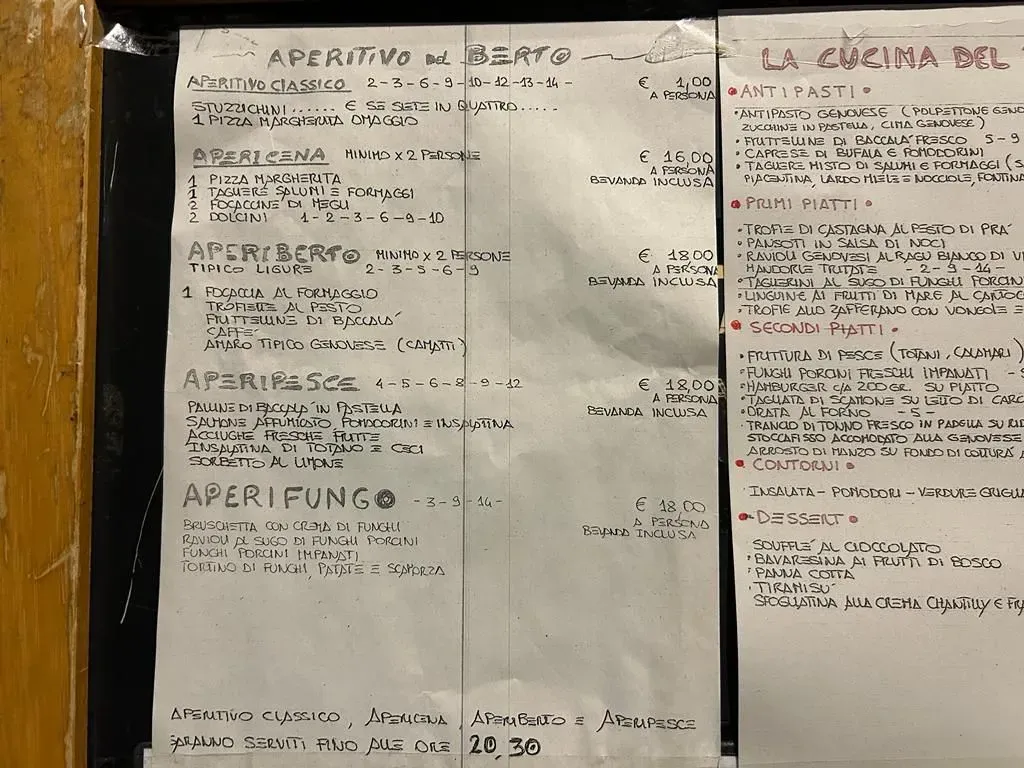 APERITIVO del BERTO
APERITIVO CLASSICO 2-3-6-9-10-12-13-14- € 1,00
A PERSONA
STUZZICHINI...... E SE SIETE IN QUATTRO.....
1 PIZZA MARGHERITA OMAGGIO
APERICENA MINIMO X 2 PERSONE € 16,00
A PERSONA
BEVANDA INCLUSA
1 PIZZA MARGHERITA
1 TAGLIERE SALUMI E FORMAGGI
2 FOCACCINE DI MEGLI
2 DOLCINI 1-2-3-6-9-10
APERIBERTO MINIMO X 2 PERSONE € 18.00
TIPICO LIGURE 2-3-5-6-9 A PERSONA
BEVANDA INCLUSA
1 FOCACCIA AL FORMAGGIO
TROFIETTE AL PESTO
FRITTELLINE DI BACCALA'
CAFFE'
AMARO TIPICO GENOVESE (CAMATTI)
APERIPESCE 4-5-6-8-9-12 € 18,00
A PERSONA
BEVANDA INCLUSA
PALLINE DI BACCALA' IN PASTELLA
SALMONE AFFUMICATO POMODORINI E INSALATINA
ACCIUGHE FRESCHE FRITTE
INSALATINA DI TOTANO E CECI
SORBETTO AL LIMONE
APERIFUNGO -3-9-14- € 18,00
A PERSONA
BEVANDA INCLUSA
BRUSCHETTA CON CREMA DI FUNGHI
RAVIOLI AL SUGO DI FUNGHI PORCINI
FUNGHI PORCINI IMPANATI
TORTINO DI FUNGHI, PATATE E SCAMORZA
APERITIVO CLASSICO, APERICENA, APERIBERTO E APERIPESCE
SARANNO SERVITI FINO ALLE ORE 20,30
LA CUCINA DEL
• ANTIPASTI •
• ANTIPASTO GENOVESE (POLPETTONE GENO
ZUCCHINE IN PASTELLA, CIMA GENOVESE)
• FRITTELLINE DI BACCALA' FRESCO 5-9
• CAPRESE DI BUFALA E POMODORINI
• TAGLIERE MISTO DI SALUMI E FORMAGGI (S
PIACENTINA, LARDO MIELE E NOCCIOLE, FONTINA
• PRIMI PIATTI •
• TROFIE DI CASTAGNA AL PESTO DI PRA'
• PANSOTI IN SALSA DI NOCI
• RAVIOLI GENOVESI AL RAGU BIANCO DI VI
MANDORLE TRITATE -2-9-14-
• TAGLIERINI AL SUGO DI FUNGHI PORCIN
• LINGUINE AI FRUTTI DI MARE AL CARTOC
• TROFIE ALLO ZAFFERANO CON VONGOLE E
• SECONDI PIATTI •
• FRITTURA DI PESCE (TOTANI, CALAMARI)
• FUNGHI PORCINI FRESCHI IMPANATI
• HAMBURGER C/A 200GR. SU PIATTO
• TAGLIATA DI SCAMONE SU LETTO DI CARC
• ORATA AL FORNO -5-
• TRANCIO DI TONNO FRESCO IN PADELLA SU
STOCCAFISSO ACCOMODATO ALLA GENOVESE
ARROSTO DI MANZO SU FONDO DI COTTURA
• CONTORNI •
INSALATA - POMODORI - VERDURE GRIGLIA
• DESSERT •
SOUFFLE' AL CIOCCOLATO
• BAVARESINA AI FRUTTI DI BOSCO
• PANNA COTTA
• TIRAMISU'
SFOGLIATINA ALLA CREMA CHANTILLY E FR